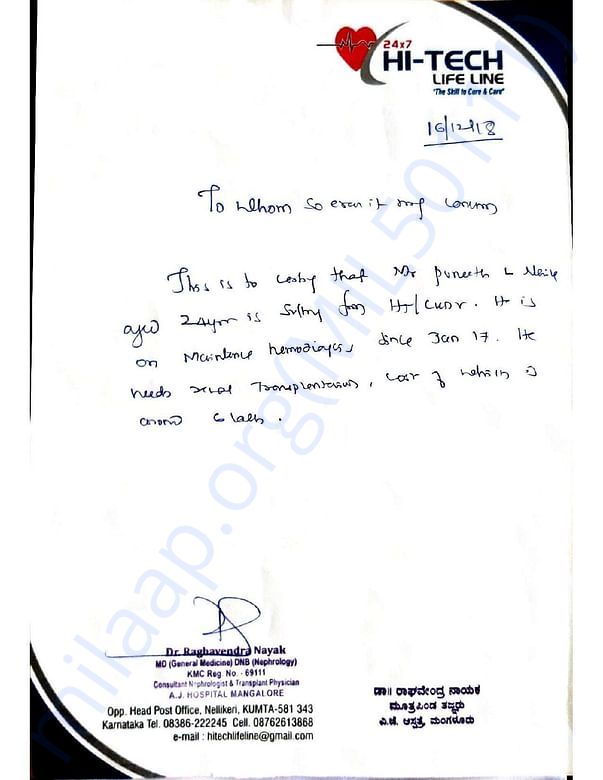 24x7
HI-TECH
LIFE LINE
"The Skill to Care & Cure"
16/12/18
To Whom So ever it may concern
This is to certify that Mr Puneeth L Naik
aged 24yrs is suffering from HT/CKD5. He is
on Maintenance hemodialysis since Jan 17. He
needs renal Transplantation, cost of which is
around 6 lakhs.
Dr Raghavendra Nayak
MD (General Medicine) DNB (Nephrology)
KMC Reg. No. - 69111
Consultant Nephrologist & Transplant Physician
A.J. HOSPITAL MANGALORE
Opp. Head Post Office, Nellikeri, KUMTA-581 343
Karnataka Tel. 08386-222245 Cell. 08762613868
e-mail : hitechlifeline@gmail.com
ಡಾ॥ ರಾಘವೇಂದ್ರ ನಾಯಕ
ಮೂತ್ರಪಿಂಡ ತಜ್ಞರು
ಎ.ಜೆ. ಆಸ್ಪತ್ರೆ, ಮಂಗಳೂರು
milaap.org(MIL50111)